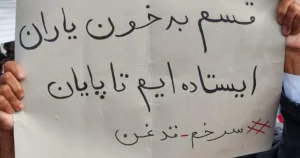 قسم به خون یاران
ایستاده ایم تا پایان
#سرخم-قدغن